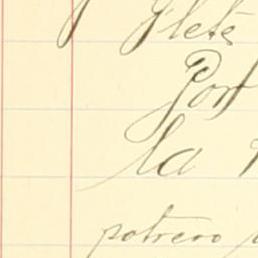 Flete
Port
la
potrero